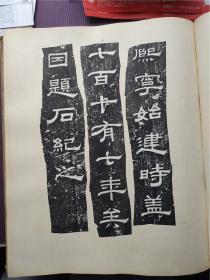 熈寧始建時蓋
七百卄有七年矣
因題石紀之